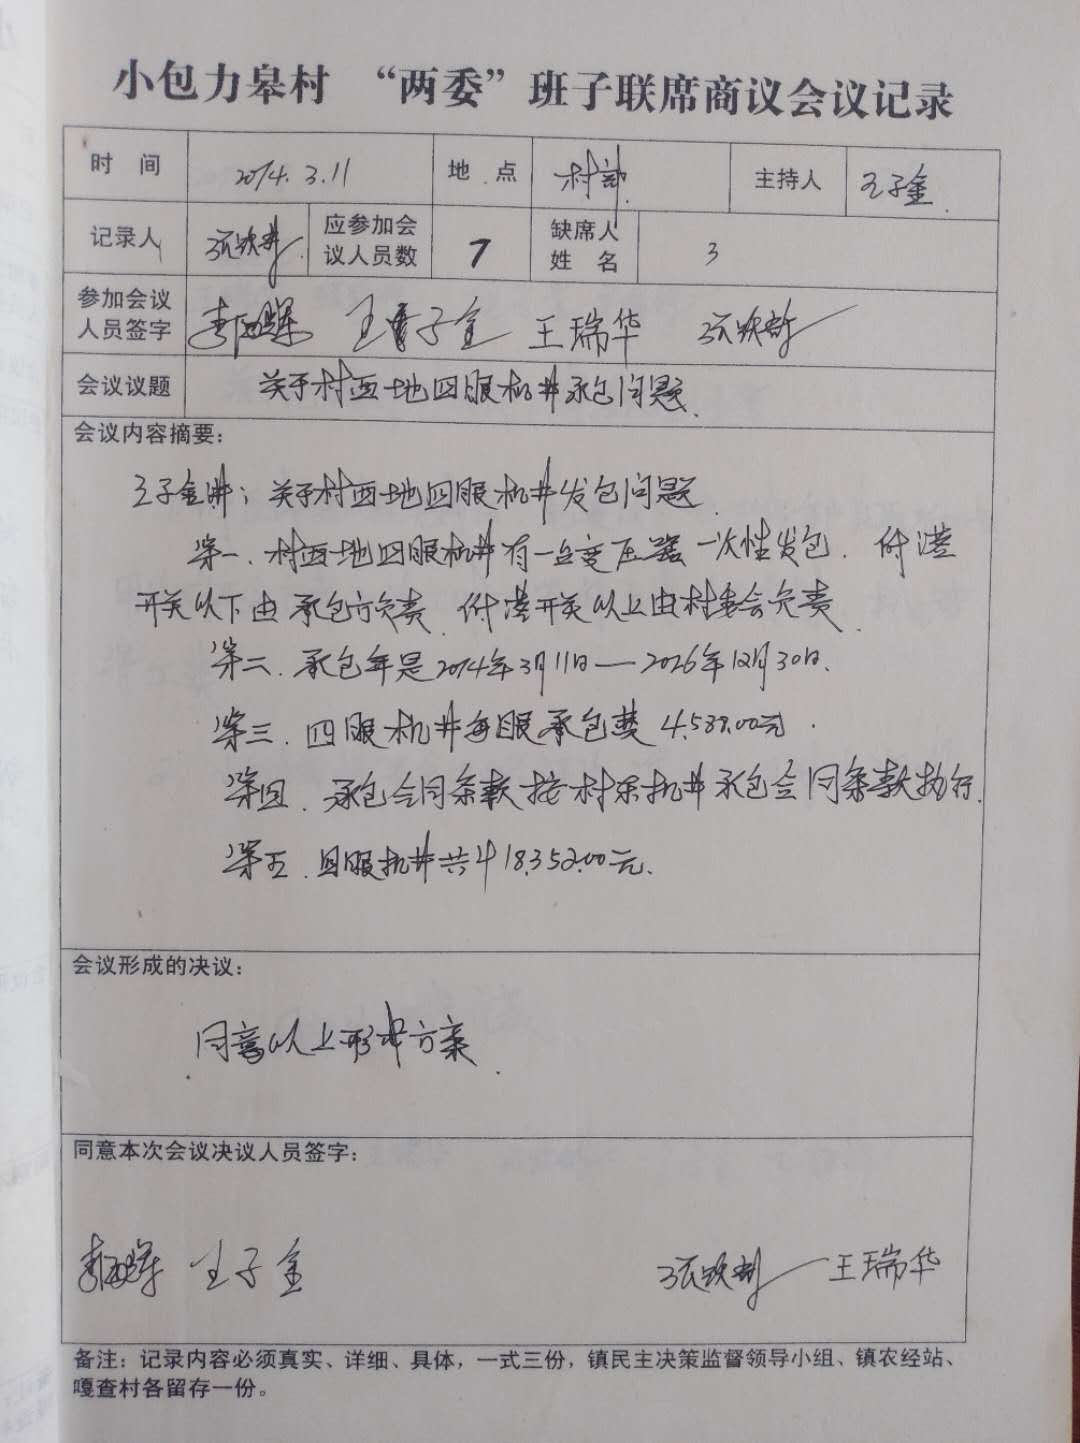 小包力皋村 “两委”班子联席商议会议记录
时 间 2014.3.11 地 点 村部 主持人 王子金
记录人 应参加会议人员数 7 缺席人姓名 3
参加会议人员签字 王子金 王瑞华
会议议题 关于村西地四眼机井承包问题.
会议内容摘要：
王子金讲: 关于村西地四眼机井发包问题.
第一. 村西地四眼机井有一台变压器 一次性发包.
开关以下由承包方负责. 开关以上由村委会负责.
第二. 承包年是2014年3月11日—2026年12月30日.
第三. 四眼机井每眼承包费 4.588.00元.
第四. 承包合同条款按村东机井承包合同条款执行.
第五. 四眼机井共计18.352.00元.
会议形成的决议：
同意以上形式方案.
同意本次会议决议人员签字：
王子金 王瑞华
备注：记录内容必须真实、详细、具体，一式三份，镇民主决策监督领导小组、镇农经站、
嘎查村各留存一份。